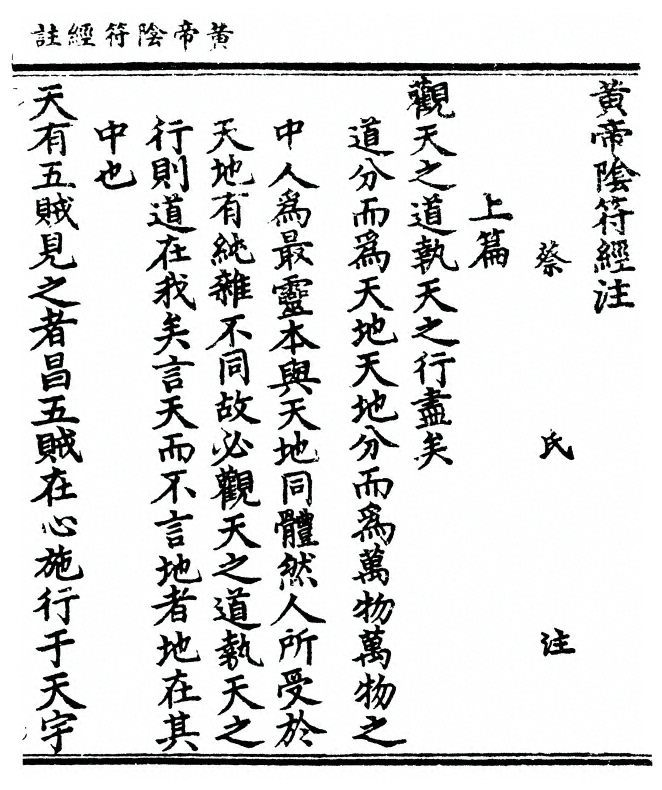 黃帝陰符經註
黃帝陰符經注
蔡氏注
上篇
觀天之道執天之行盡矣
道分而爲天地天地分而爲萬物萬物之
中人爲最靈本與天地同體然人所受於
天地有純雜不同故必觀天之道執天之
行則道在我矣言天而不言地者地在其
中也
天有五賊見之者昌五賊在心施行于天宇